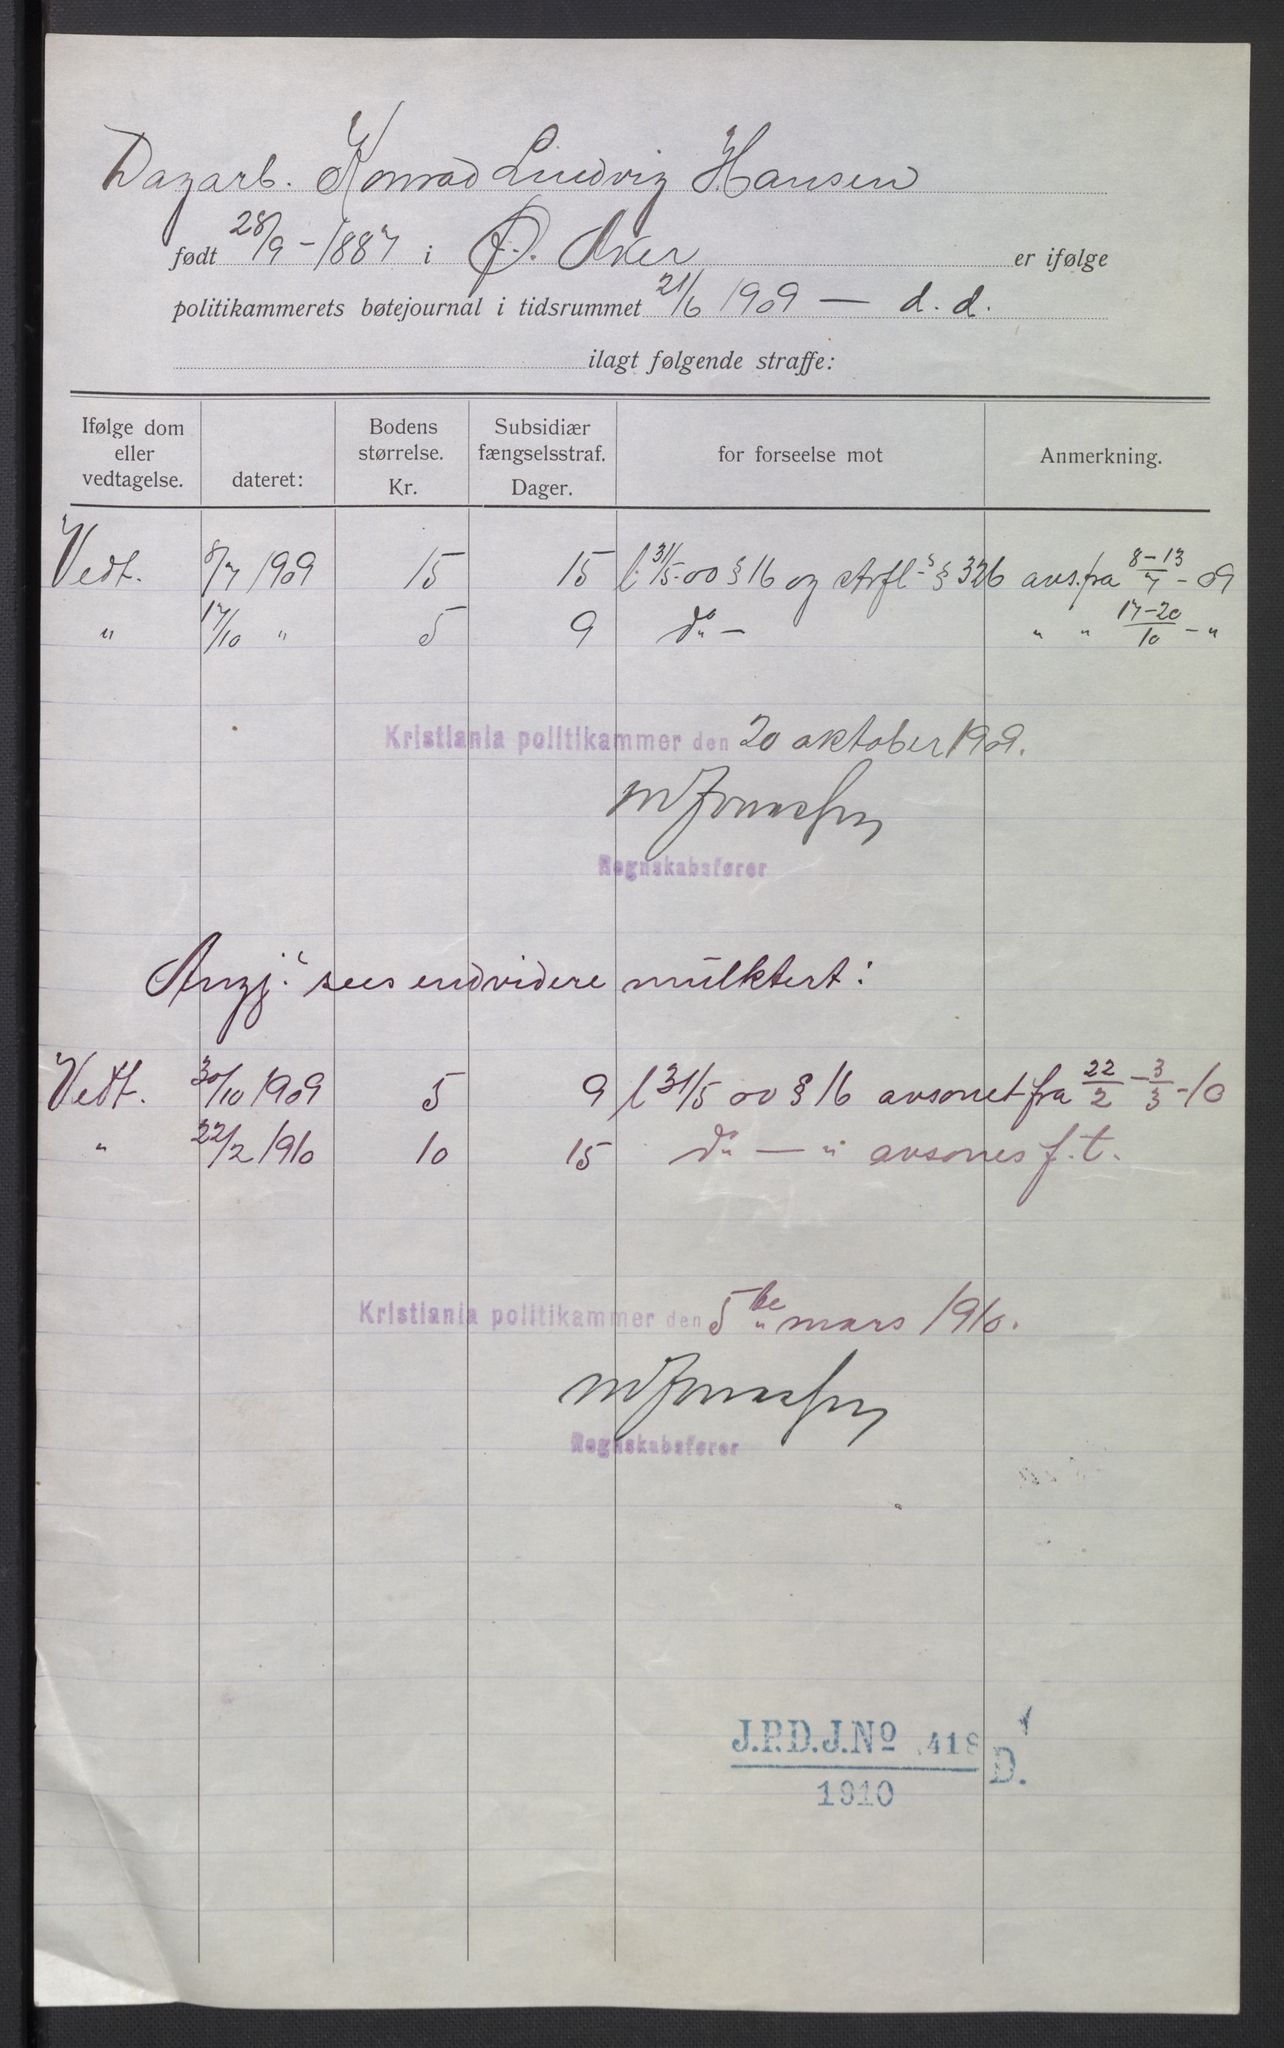 Dagarb. Konrad Ludvig Hansen
født 28/9 - 1887 i Ø. Aker er ifølge
politikammerets bøtejournal i tidsrummet 21/6 1909 — d. d.
ilagt følgende straffe:
Ifølge dom eller vedtagelse. dateret: Bodens størrelse. Kr. Subsidiær fængselsstraf. Dager. for forseelse mot Anmerkning.
Vedt. 8/7 1909 15 15 l 31/5 00 § 16 og strfl-s § 326 avs. fra 8-13/7 - 09
" 17/10 " 5 9 do — " " 17-20/10 - "
Kristiania politikammer den 20 oktober 1909.
Regnskabsfører
Angj. sees endvidere mulktert:
Vedt. 30/10 1909 5 9 l 31/5 00 § 16 avsonet fra 22/2 - 3/3 - 10
" 22/2 1910 10 15 do — " avsones f. t.
Kristiania politikammer den 5te mars 1910.
Regnskabsfører
J.P.D.J.No 418 D.
1910